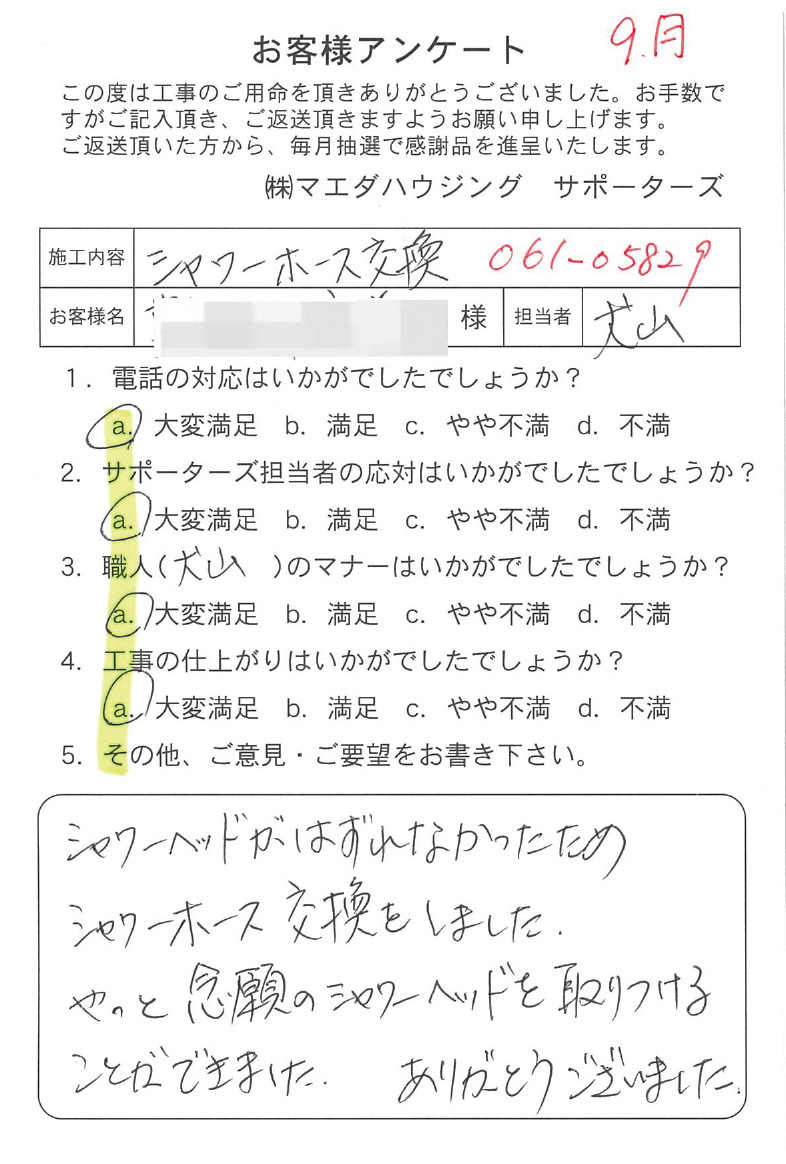 お客様アンケート 9月
この度は工事のご用命を頂きありがとうございました。お手数で
すがご記入頂き、ご返送頂きますようお願い申し上げます。
ご返送頂いた方から、毎月抽選で感謝品を進呈いたします。
㈱マエダハウジング サポーターズ
施工内容 シャワーホース交換 061-05829
お客様名 様 担当者 犬山
1. 電話の対応はいかがでしたでしょうか?
a. 大変満足 b. 満足 c. やや不満 d. 不満
2. サポーターズ担当者の応対はいかがでしたでしょうか?
a. 大変満足 b. 満足 c. やや不満 d. 不満
3. 職人(犬山 )のマナーはいかがでしたでしょうか?
a. 大変満足 b. 満足 c. やや不満 d. 不満
4. 工事の仕上がりはいかがでしたでしょうか?
a. 大変満足 b. 満足 c. やや不満 d. 不満
5. その他、ご意見・ご要望をお書き下さい。
シャワーヘッドがはずれなかったため
シャワーホース交換をしました.
やっと念願のシャワーヘッドを取りつける
ことができました. ありがとうございました.